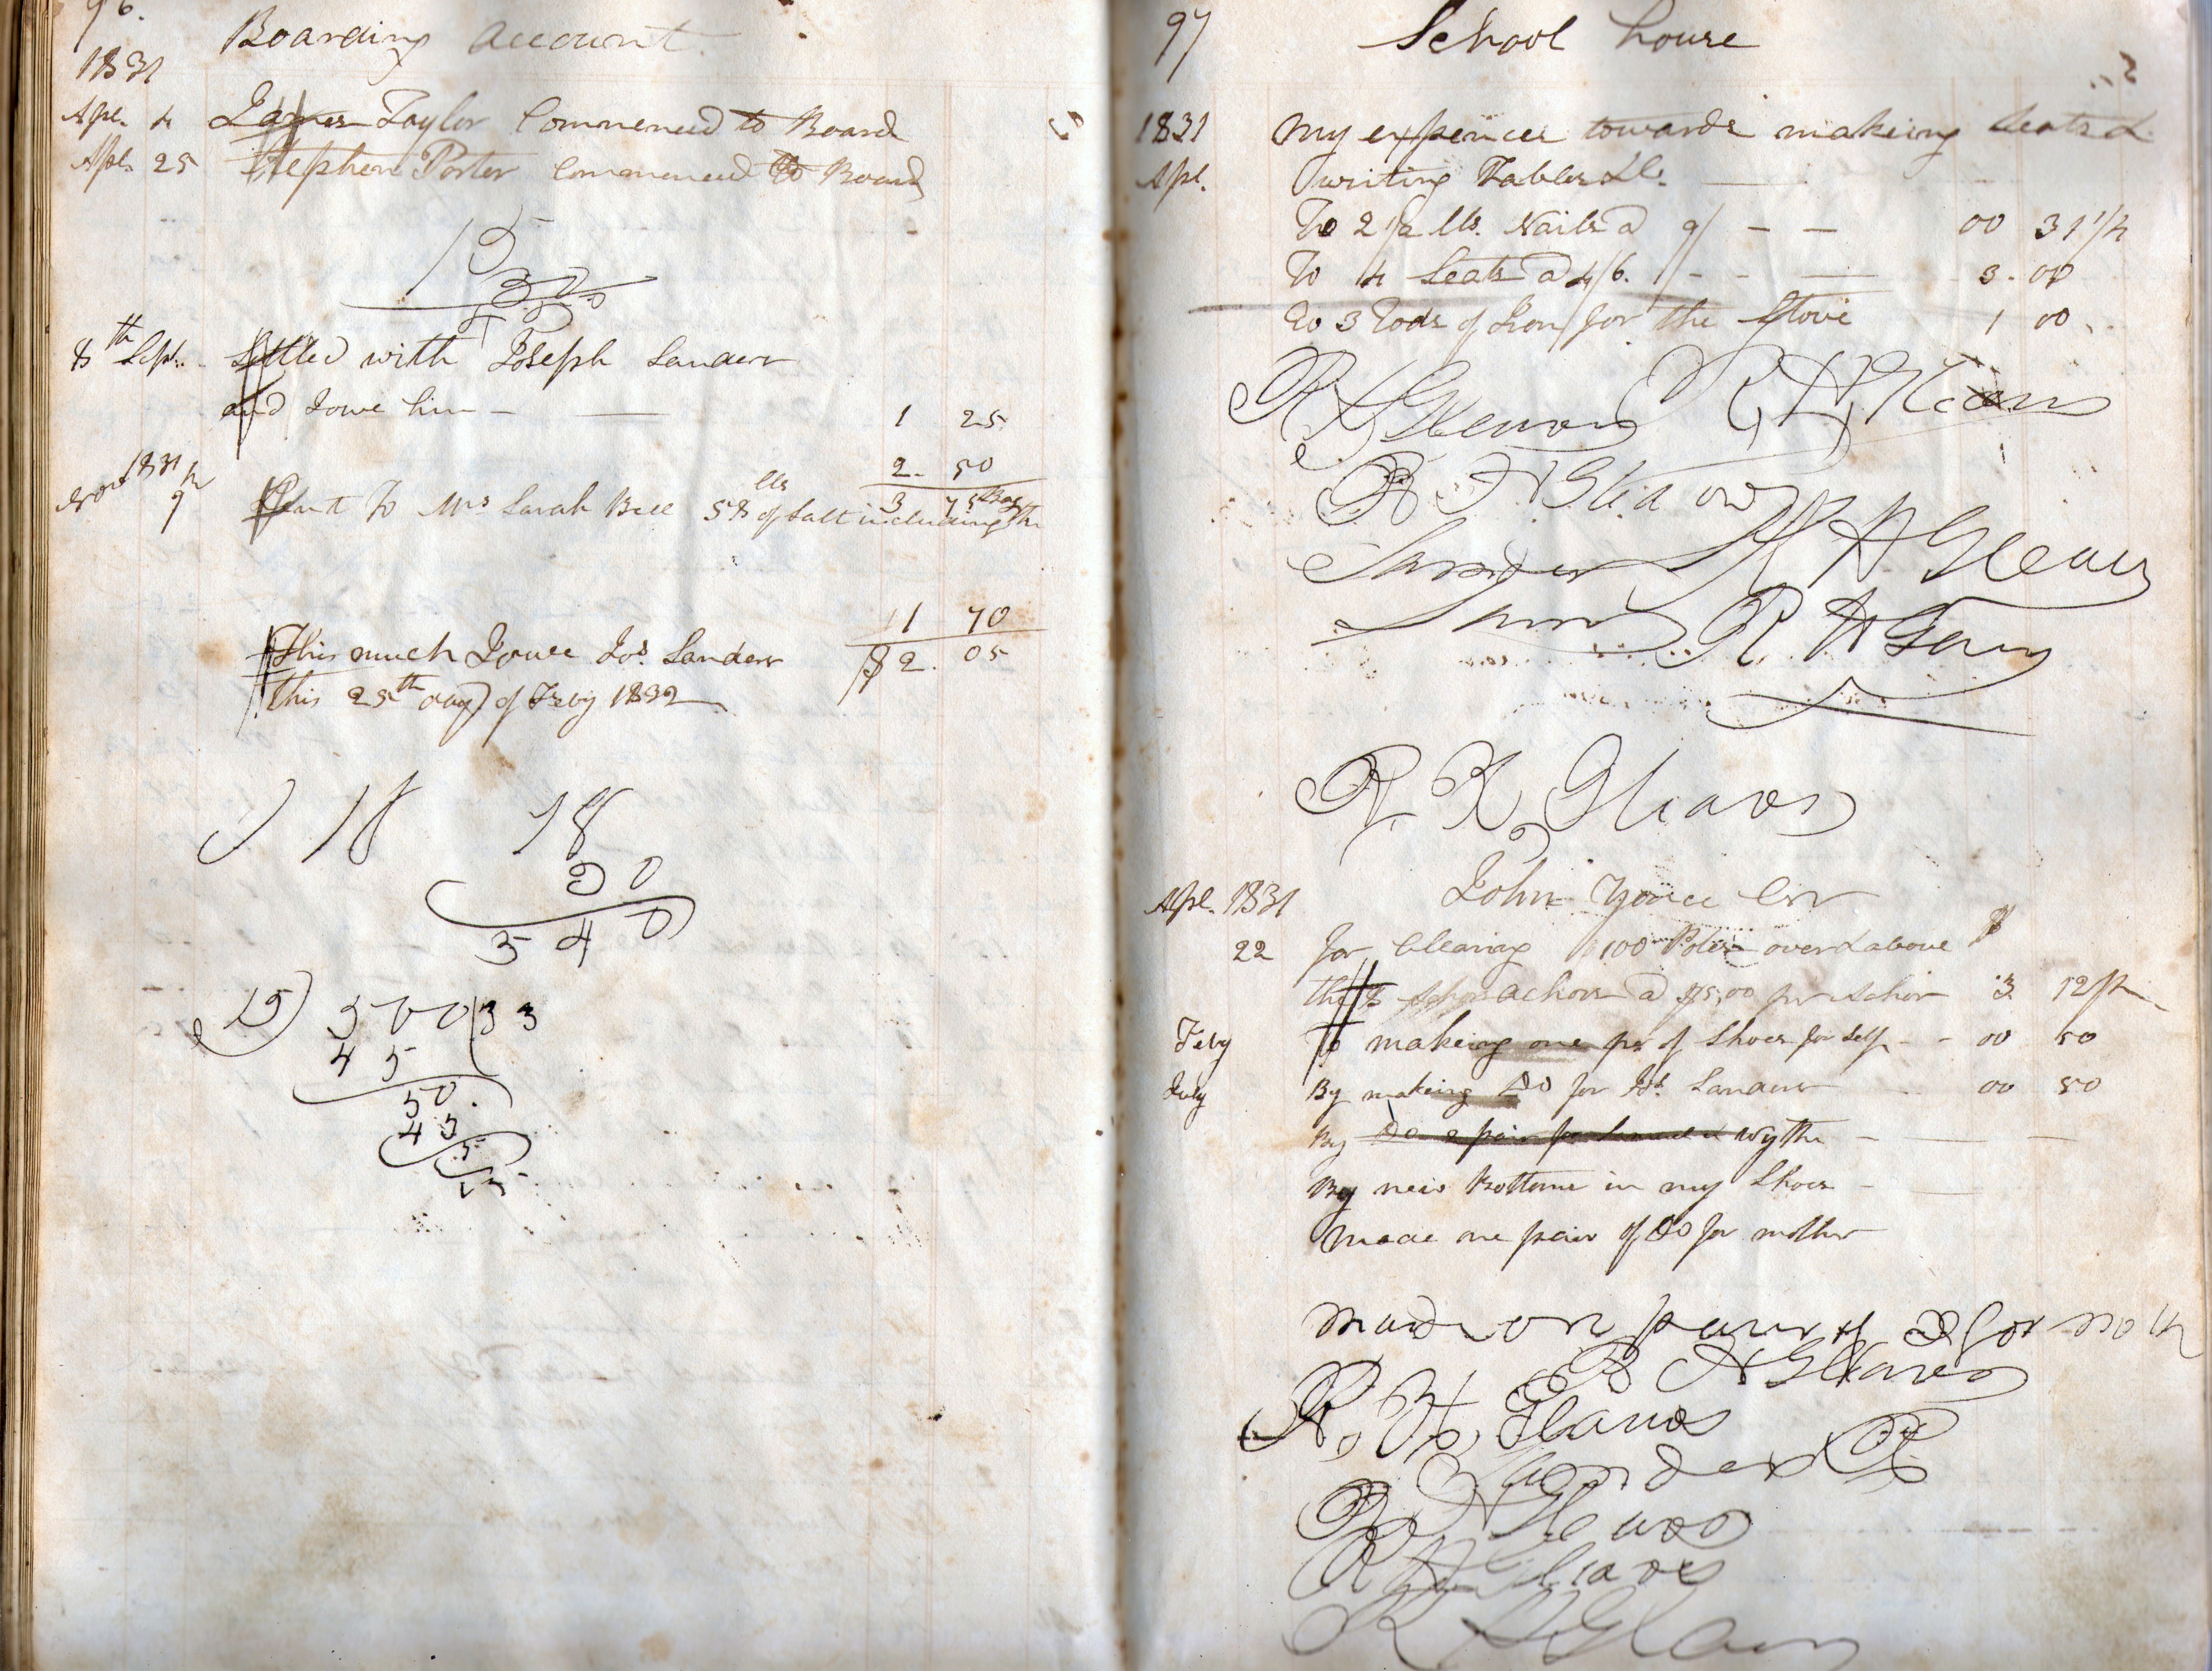 96.
Boarding Account.
1831
Apl. 4 James Taylor Commenced to Board
Apl. 25 Stephen Porter Commenced to Board
15
30
8th Sept. Settled with Joseph Sanders
and I owe him — — 1 25
2. 50
Novr 1831
9 Sent To Mrs Sarah Bell 58 lls of Salt including the Bag
3 75
1 70
This much I owe Jos. Sanders $2. 05
this 25th day of Feby 1832
18 18
30
540
15) 500 (33
45
50
45
5
97
School house
1831 My expences towards makeing Seats &
Apl. writing Tables &c.
To 2 1/2 lls. Nails a 9/ — — 00 31 1/4
To 4 Seats a 4/6. — — 3. 00
To 3 Rods of Iron for the Stove 1 00
R H Gleaves R H Gleaves
R H Gleaves
Sanders R H Gleaves
R H Gleaves
Apl. 1831 John Youce Cr
22 for Clearing 100 Poles over & above $
the 8 achors a $5,00 per achor 3 12 1/2
Feby To makeing one pr of Shoes for self — — 00 50
July By making Do for Jos. Sanders — 00 50
By Do a pair for Wythe —
By new Bottoms in my Shoes —
Made one pair of Do for mother
made on pair of D for moth
R H Gleaves
R. H. Gleaves
Sanders R
R H Gleaves
R H Gleaves
R H Gleaves